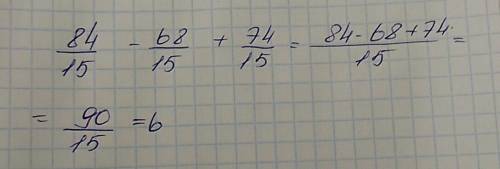 84/15 - 68/15 + 74/15 = (84-68+74)/15 =
= 90/15 = 6